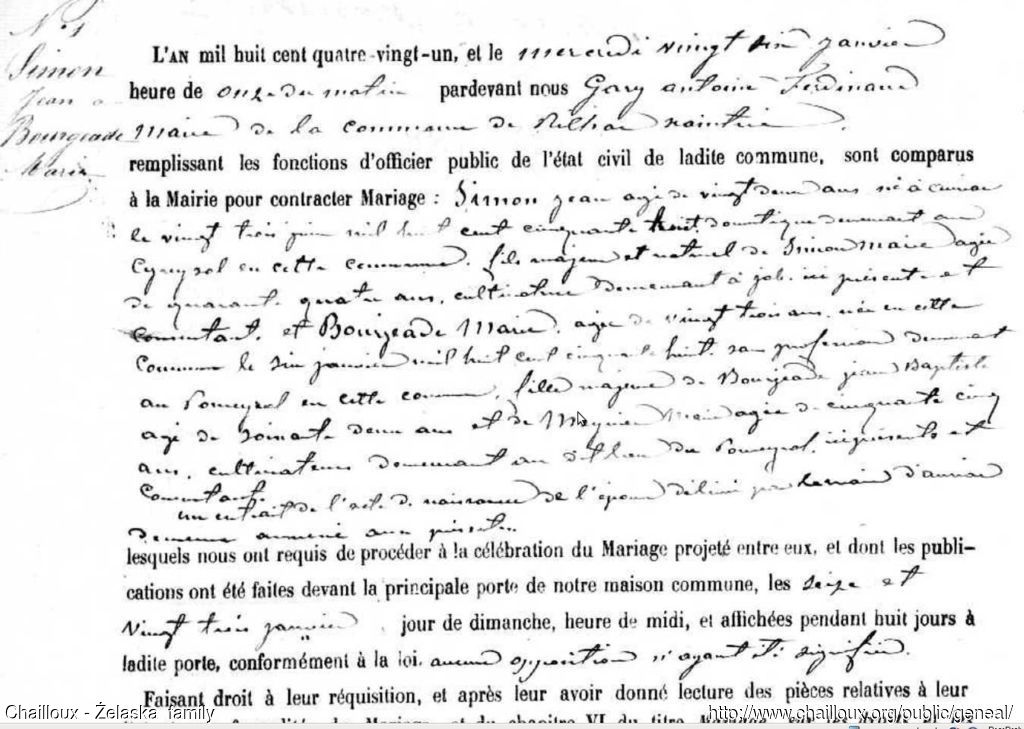 N° 1
Simon
Jean
Bourgeade
Marie
L'AN mil huit cent quatre-vingt-un, et le mercredi vingt six janvier
heure de onze du matin pardevant nous Gary antoine Ferdinand
Maire de la commune de Rilhac xaintrie
remplissant les fonctions d'officier public de l'état civil de ladite commune, sont comparus
à la Mairie pour contracter Mariage : Simon jean agé de vingt deux ans né à
le vingt trois juin mil huit cent cinquante huit domestique demeurant au
en cette commune, fils majeur et naturel de Simon Marie agée
de quarante quatre ans, cultivatrice demeurant à job, ici présente et
consentant, et Bourgeade Marie, agée de vingt trois ans, née en cette
commune le six janvier mil huit cent cinquante huit, san profession demeurant
au Pomeyrol en cette commune, fille majeure de Bourgeade jean Baptiste
agé de soixante deux ans et de Marie agée de cinquante cinq
ans, cultivateurs demeurant au dit lieu du Pomeyrol, ici présents et
consentant.
un extrait de l'acte de naissance de l'époux délivré par
demeure annexé aux présentes
lesquels nous ont requis de procéder à la célébration du Mariage projeté entre eux, et dont les publi-
cations ont été faites devant la principale porte de notre maison commune, les seize et
Vingt trois janvier jour de dimanche, heure de midi, et affichées pendant huit jours à
ladite porte, conformément à la loi. aucune opposition n'ayant été signifiée.
Faisant droit à leur réquisition, et après leur avoir donné lecture des pièces relatives à leur
Chailloux - Želaska family
http://www.chailloux.org/public/geneal/